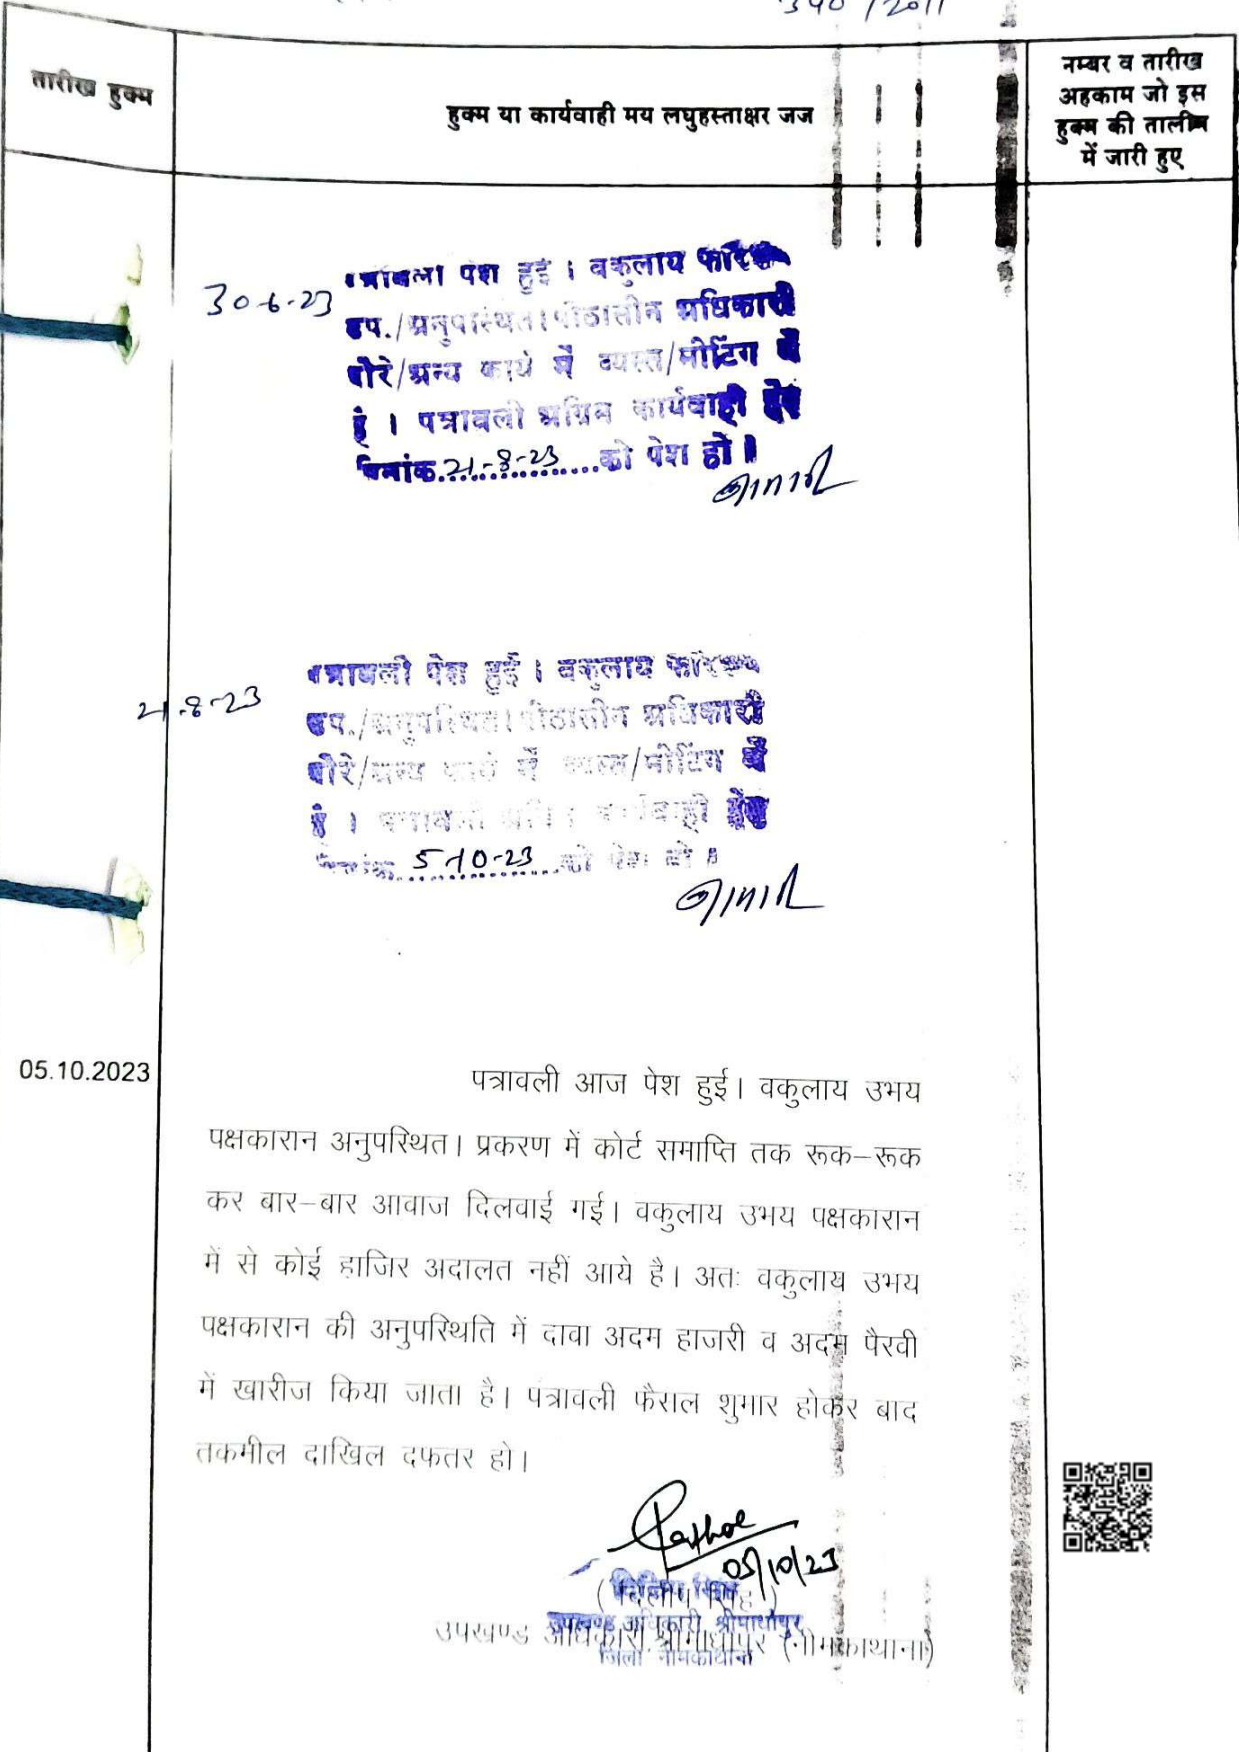 340/2011
तारीख हुक्म
हुक्म या कार्यवाही मय लघुहस्ताक्षर जज
नम्बर व तारीख
अहकाम जो इस
हुक्म की तालीम
में जारी हुए
30-6-23
पत्रावली पेश हुई । वकुलाय फरिकेन
उप./अनुपस्थित।पीठासीन अधिकारी
दौरे/अन्य कार्य में व्यस्त/मीटिंग में
हैं । पत्रावली अग्रिम कार्यवाही हेतु
दिनांक 21-8-23 को पेश हो।
21-8-23
पत्रावली पेश हुई । वकुलाय फरिकेन
उप./अनुपस्थित।पीठासीन अधिकारी
दौरे/अन्य कार्य में व्यस्त/मीटिंग में
हैं । पत्रावली अग्रिम कार्यवाही हेतु
दिनांक 5-10-23 को पेश हो।
05.10.2023
पत्रावली आज पेश हुई। वकुलाय उभय
पक्षकारान अनुपस्थित। प्रकरण में कोर्ट समाप्ति तक रूक–रूक
कर बार–बार आवाज दिलवाई गई। वकुलाय उभय पक्षकारान
में से कोई हाजिर अदालत नहीं आये है। अतः वकुलाय उभय
पक्षकारान की अनुपस्थिति में दावा अदम हाजरी व अदम पैरवी
में खारीज किया जाता है। पत्रावली फैसल शुमार होकर बाद
तकमील दाखिल दफ्तर हो।
05/10/23
(दिलीप सिंह)
उपखण्ड अधिकारी, श्रीमाधोपुर
उपखण्ड अधिकारी श्रीमाधोपुर (नीमकाथाना)
जिला नीमकाथाना